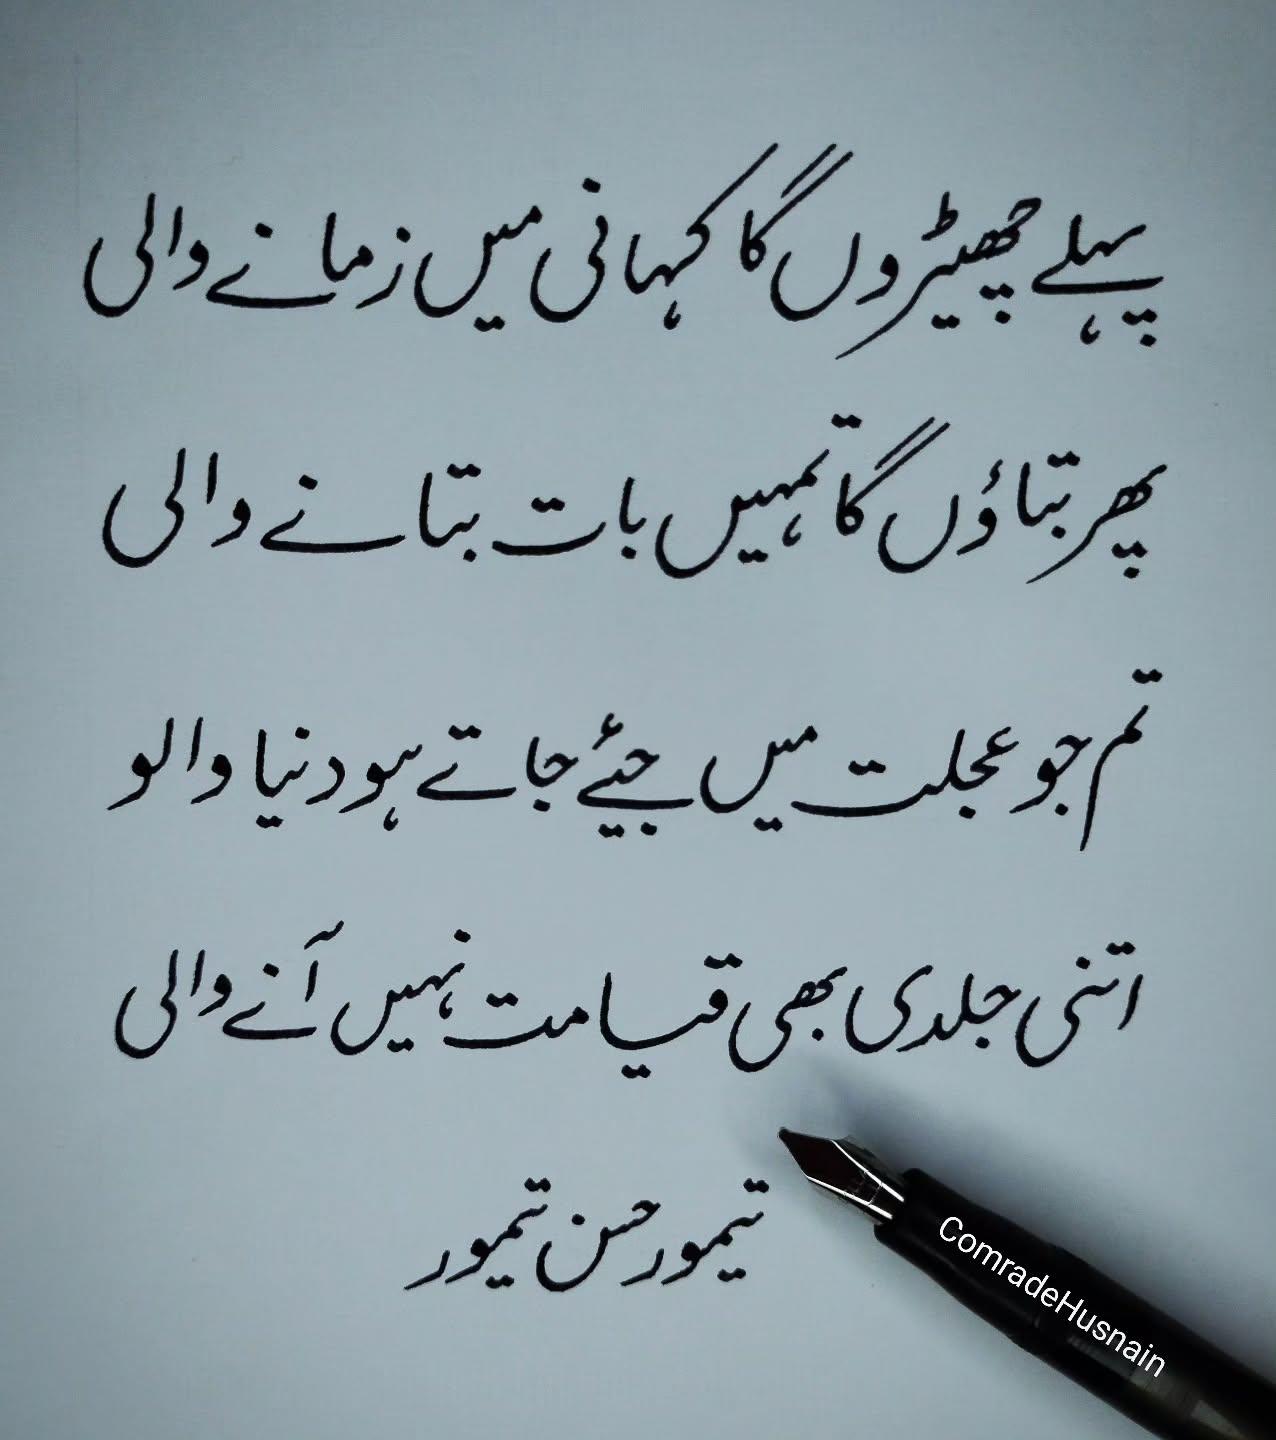 پہلے چھیڑوں گا کہانی میں زمانے والی
پھر بتاؤں گا تمہیں بات بتانے والی
تم جو عجلت میں جیئے جاتے ہو دنیا والو
اتنی جلدی بھی قیامت نہیں آنے والی
تیمور حسن تیمور
ComradeHusnain